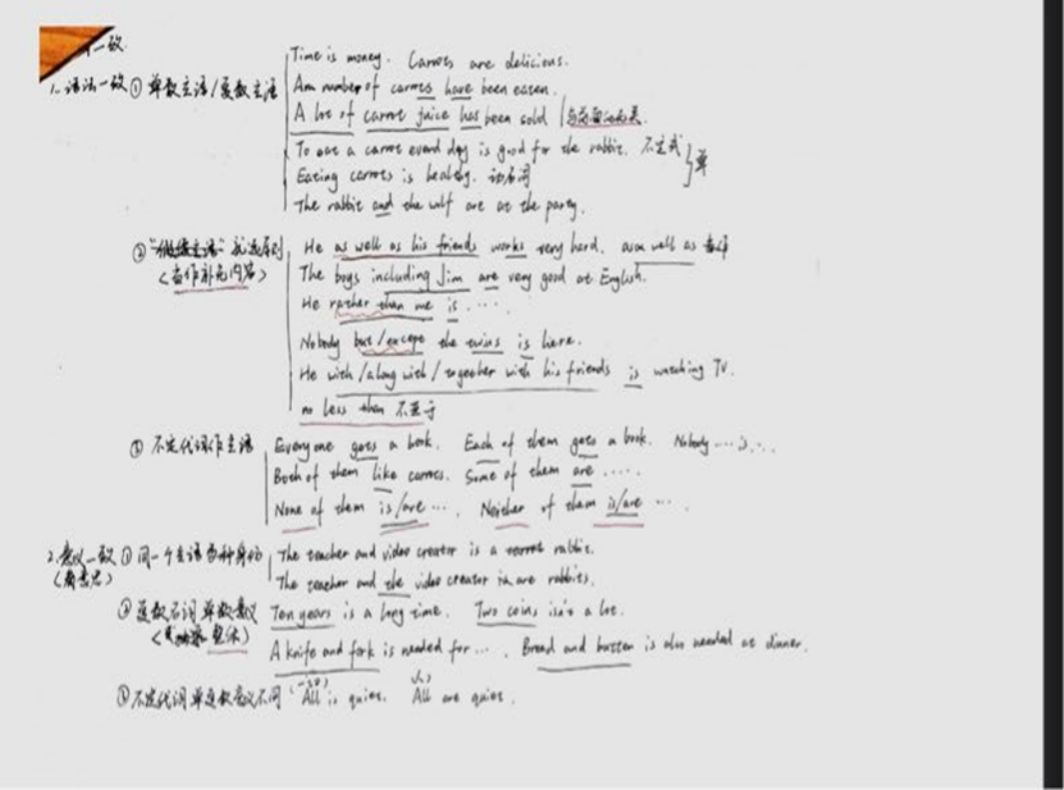 一致.
1. 语法一致 ① 单数主语/复数主语
Time is money. Carrots are delicious.
Am number of carrots have been eaten.
A lot of carrot juice has been sold
To eat a carrot everd day is good for the rabbit. 不定式 } 单
Eating carrots is healthy. 动名词
The rabbit and the wolf are at the party.
② 就远原则
(当作补充内容)
He as well as his friends works very hard. as well as
The boys including Jim are very good at English.
He rather than me is .....
Nobody but/except the twins is here.
He with/along with/together with his friends is watching TV.
no less than 不亚于
③ 不定代词作主语
Everyone gets a book. Each of them gets a book. Nobody .... is ...
Both of them like carrots. Some of them are .....
None of them is/are .... Neither of them is/are ...
2. 意义一致 ① 同一个主语 身份
The teacher and video creator is a rabbit.
The teacher and the video creator are rabbits.
② 复数名词单数意义
(整体)
Ten years is a long time. Two coins isn't a lot.
A knife and fork is needed for .... Bread and butter is also needed at dinner.
③ 不定代词单复数意义不同
All is quiet. (人) All are quiet.